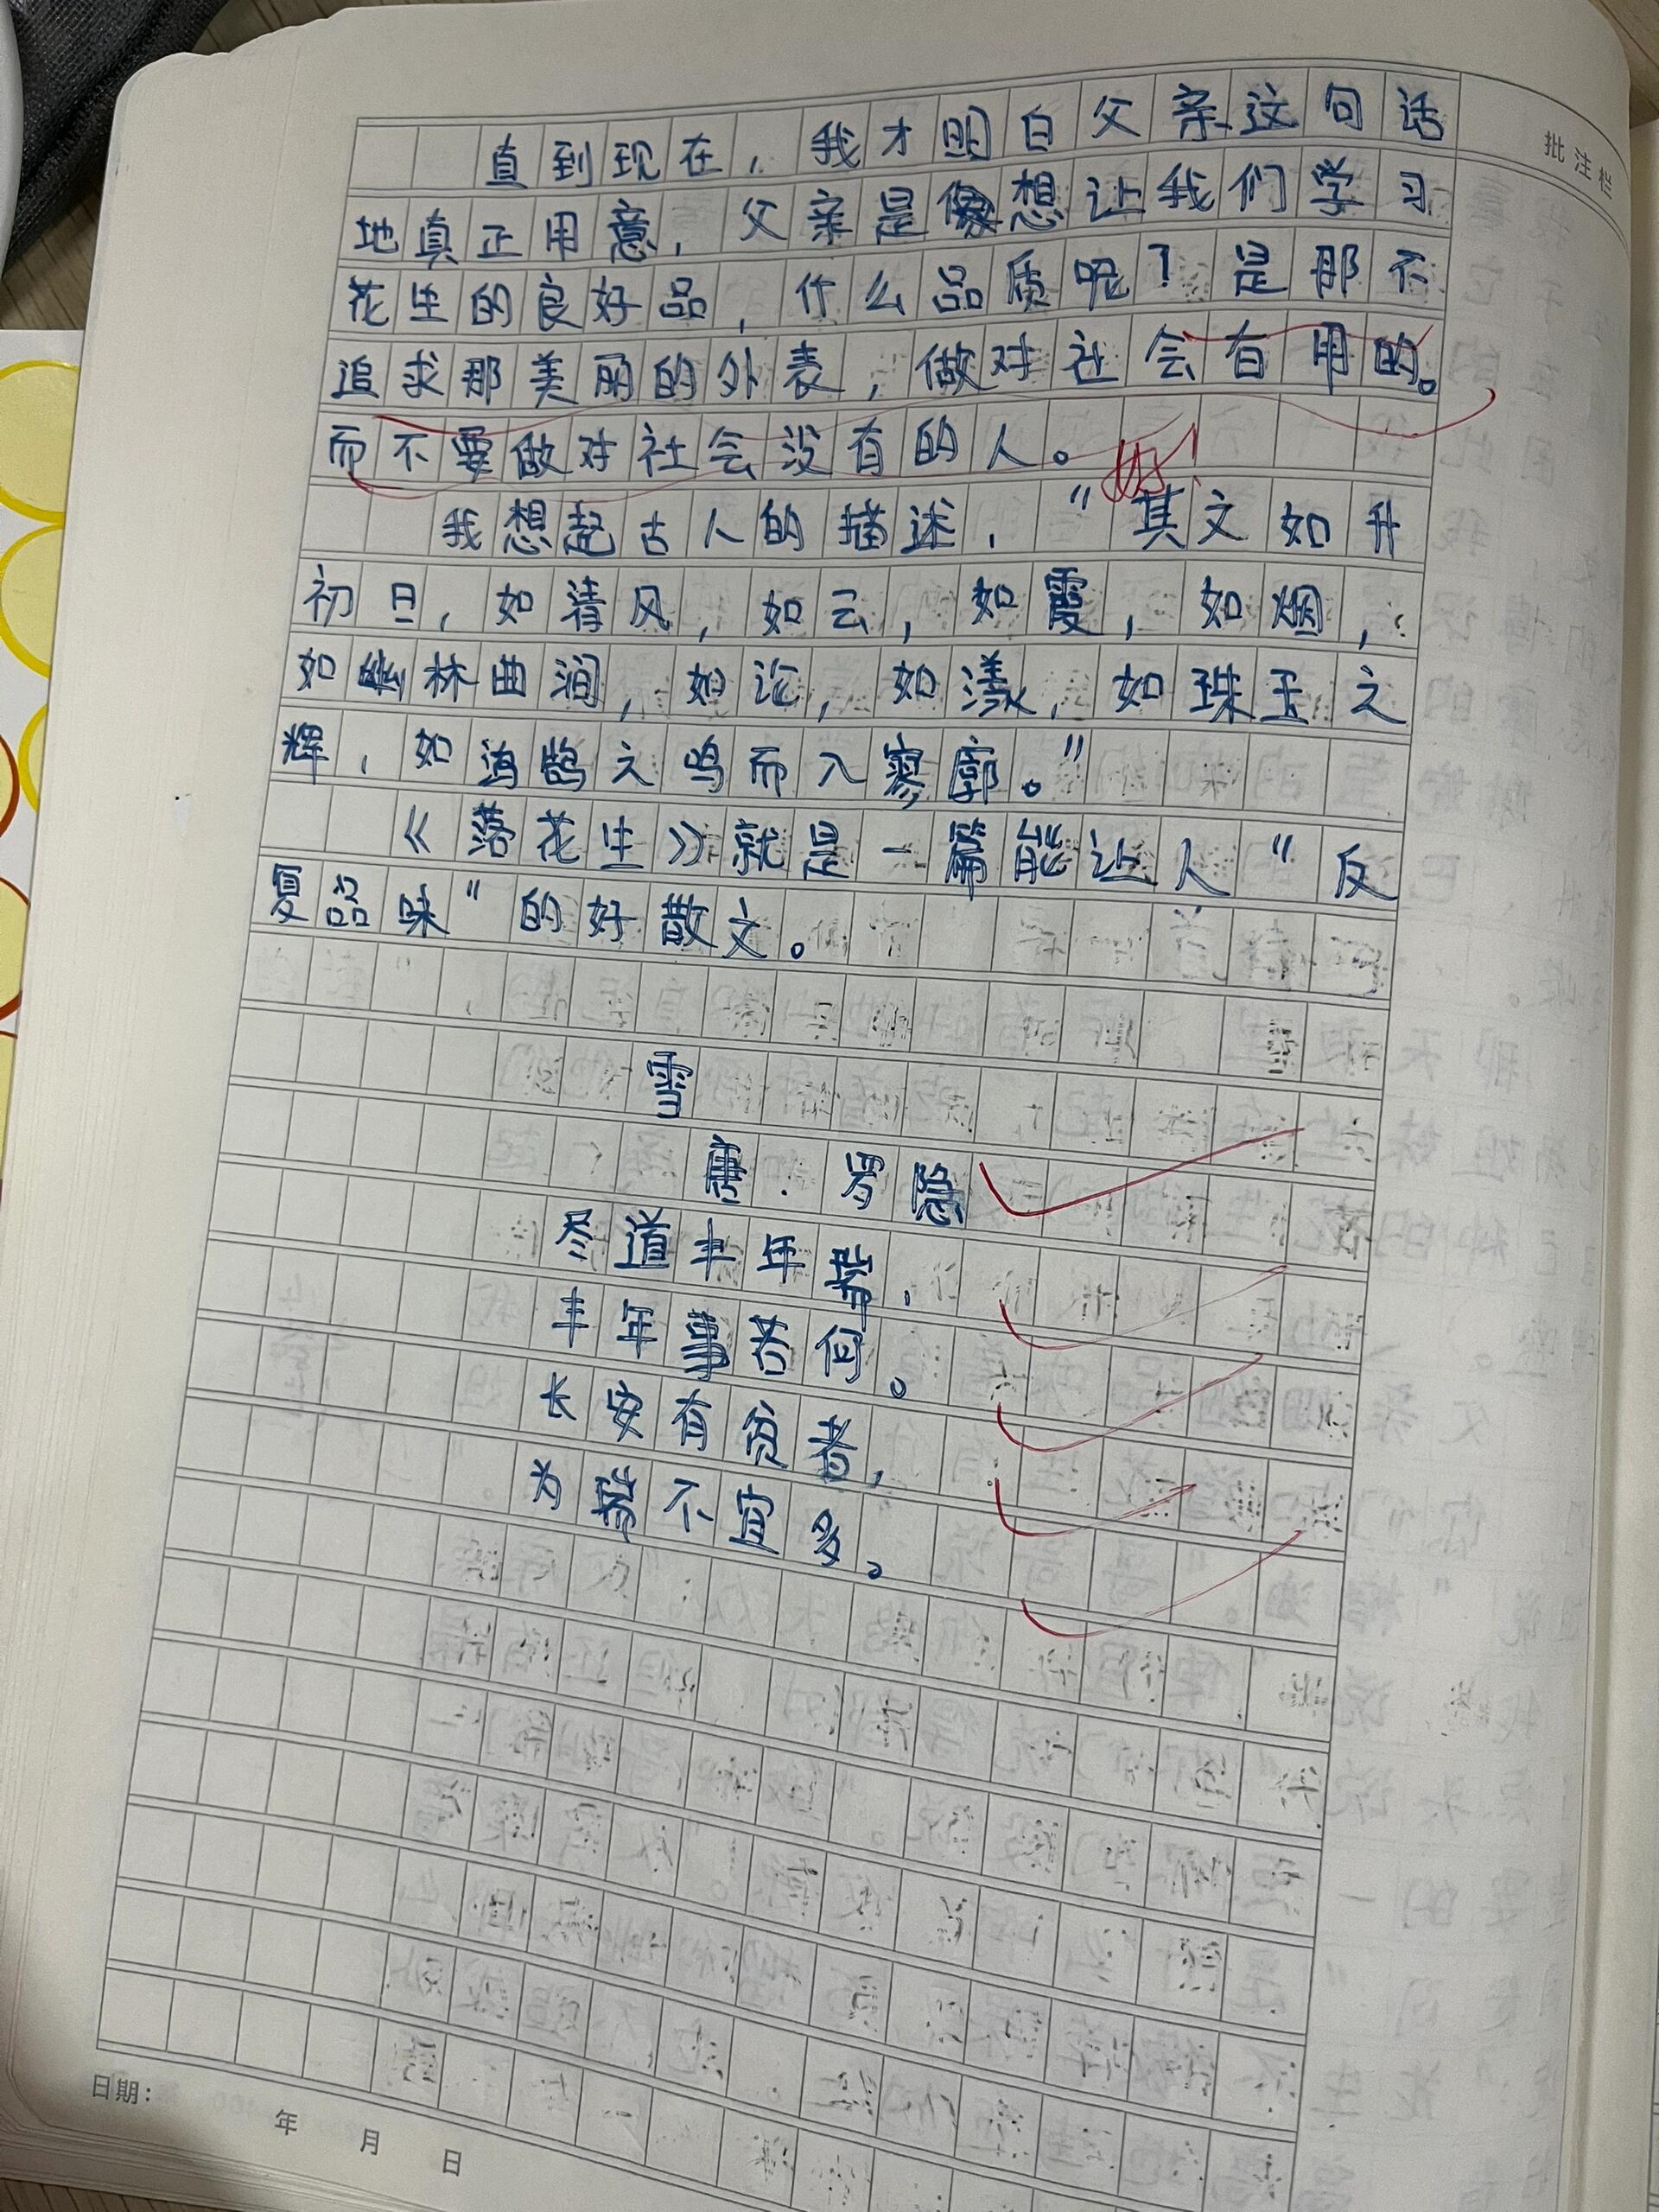 批注栏
直到现在，我才明白父亲这句话
地真正用意，父亲是想让我们学习
花生的良好品，什么品质呢？是那不
追求那美丽的外表，做对社会有用的。
而不要做对社会没有的人。好！
我想起古人的描述，“其文如升
初日，如清风，如云，如霞，如烟，
如幽林曲涧，如沦，如漾，如珠玉之
辉，如鸿鹄之鸣而入寥廓。”
《落花生》就是一篇能让人“反
复品味”的好散文。
雪
唐．罗隐
尽道丰年瑞，
丰年事若何。
长安有贫者，
为瑞不宜多。
日期： 年 月 日